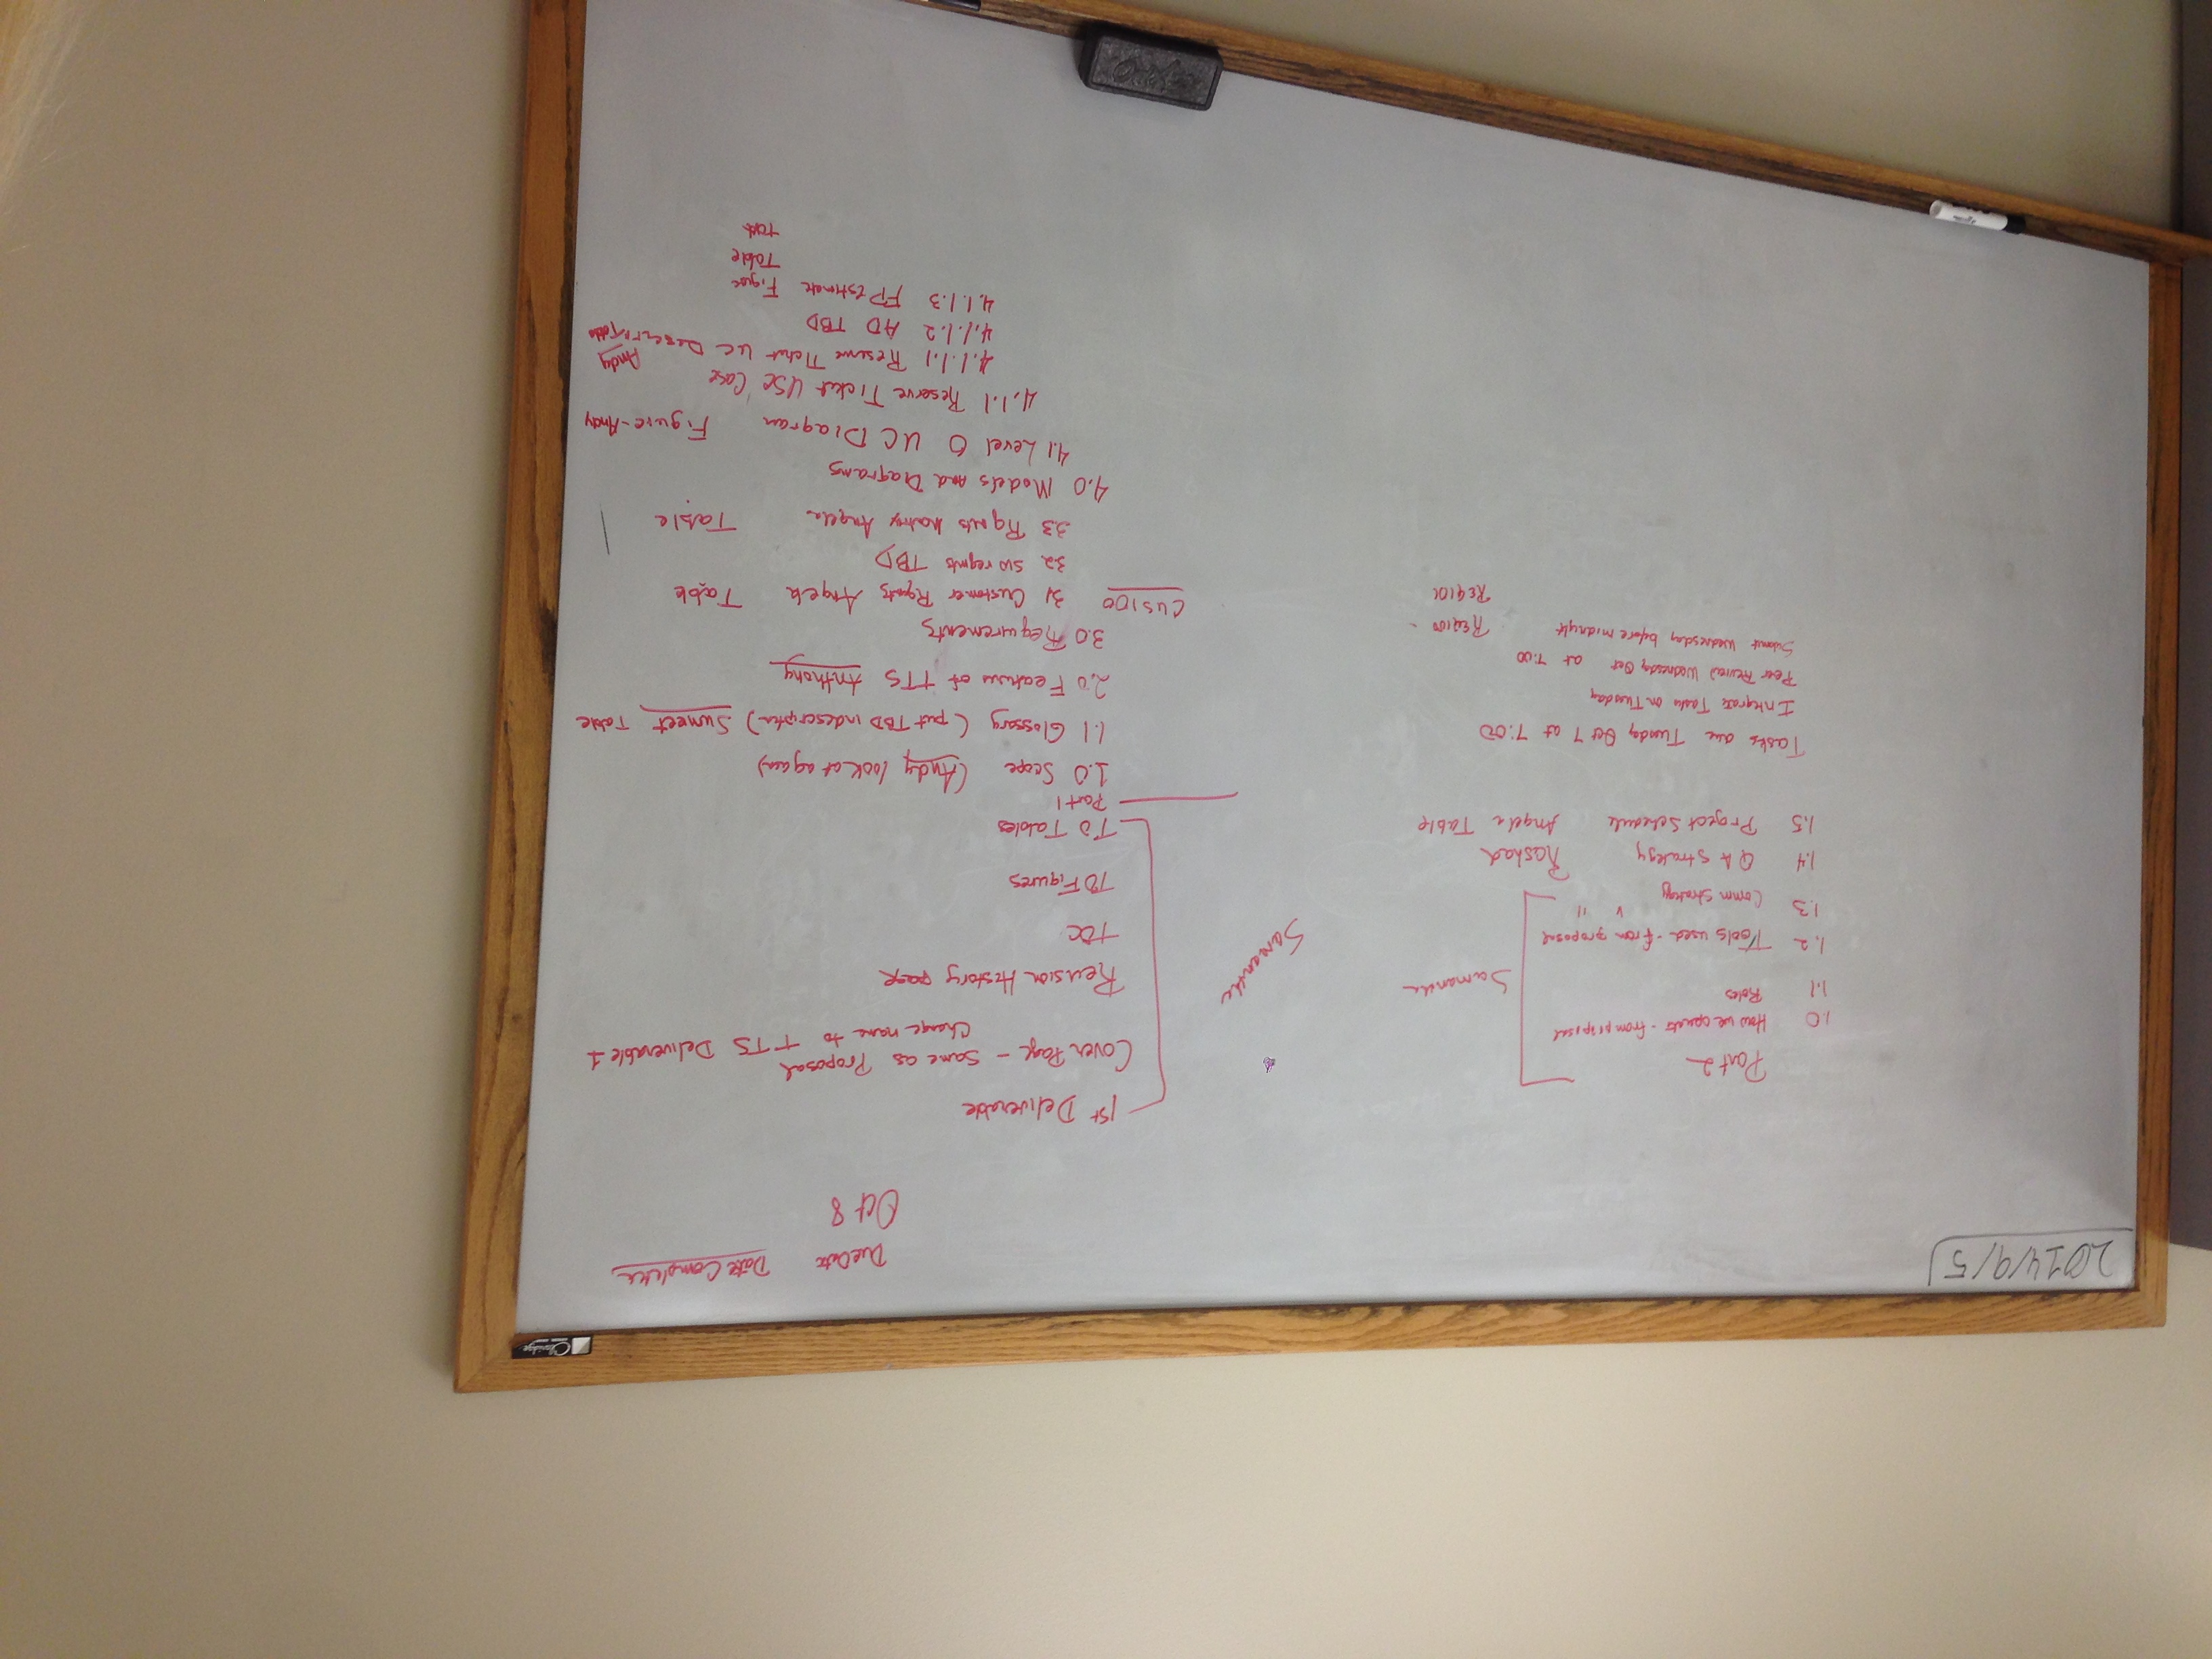 Claridge
2014/9/5
Due Date Date Complete
Oct 8
Part 2
1.0 How we operate - from proposal
1.1 Roles
1.2 Tools used - from proposal
1.3 Comm strategy " "
Samantha
1.4 QA strategy Rashad
1.5 Project Schedule Angela Table
Tasks due Tuesday Oct 7 at 7:00
Integrate Tasks on Tuesday
Peer Review Wednesday Oct at 7:00
Submit Wednesday before midnight
REQ100 -
REQ101
Samantha
1st Deliverable
Cover Page - Same as Proposal
Change name to TTS Deliverable 1
Revision History page
TOC
TO Figures
TO Tables
Part 1
1.0 Scope (Andy look at again)
1.1 Glossary (put TBD in description) Sumeet Table
2.0 Features of TTS Anthony
3.0 Requirements
CUS100
3.1 Customer Rqmts Angela Table
3.2 SW reqmts TBD
3.3 Rqmts Matrix Angela Table
4.0 Models and Diagrams
4.1 Level 0 UC Diagram Figure - Andy
4.1.1 Reserve Ticket Use Case
4.1.1.1 Reserve Ticket UC Descript Andy Table
4.1.1.2 AD TBD
4.1.1.3 FP estimate Figure
Table